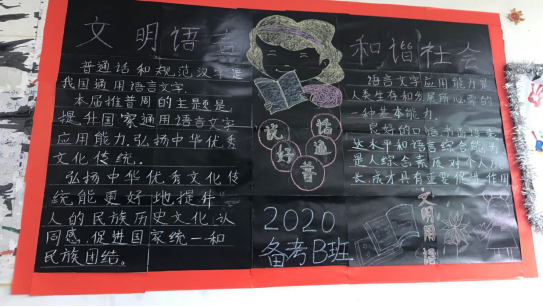 文明语言
和谐社会
普通话和规范汉字是
我国通用语言文字.
本届推普周的主题是
提升国家通用语言文字
应用能力,弘扬中华优秀
文化传统.
弘扬中华优秀文化传
统能更好地提升
人的民族历史文化认
同感,促进国家统一和
民族团结。
说好普通话
2020
备考B班
语言文字应用能力是
人类生存和发展所必需的
一种基本能力.
良好的口语
水平和语言综合能
是人综合素质,对个人
成才具有重要促进作用
文明用语